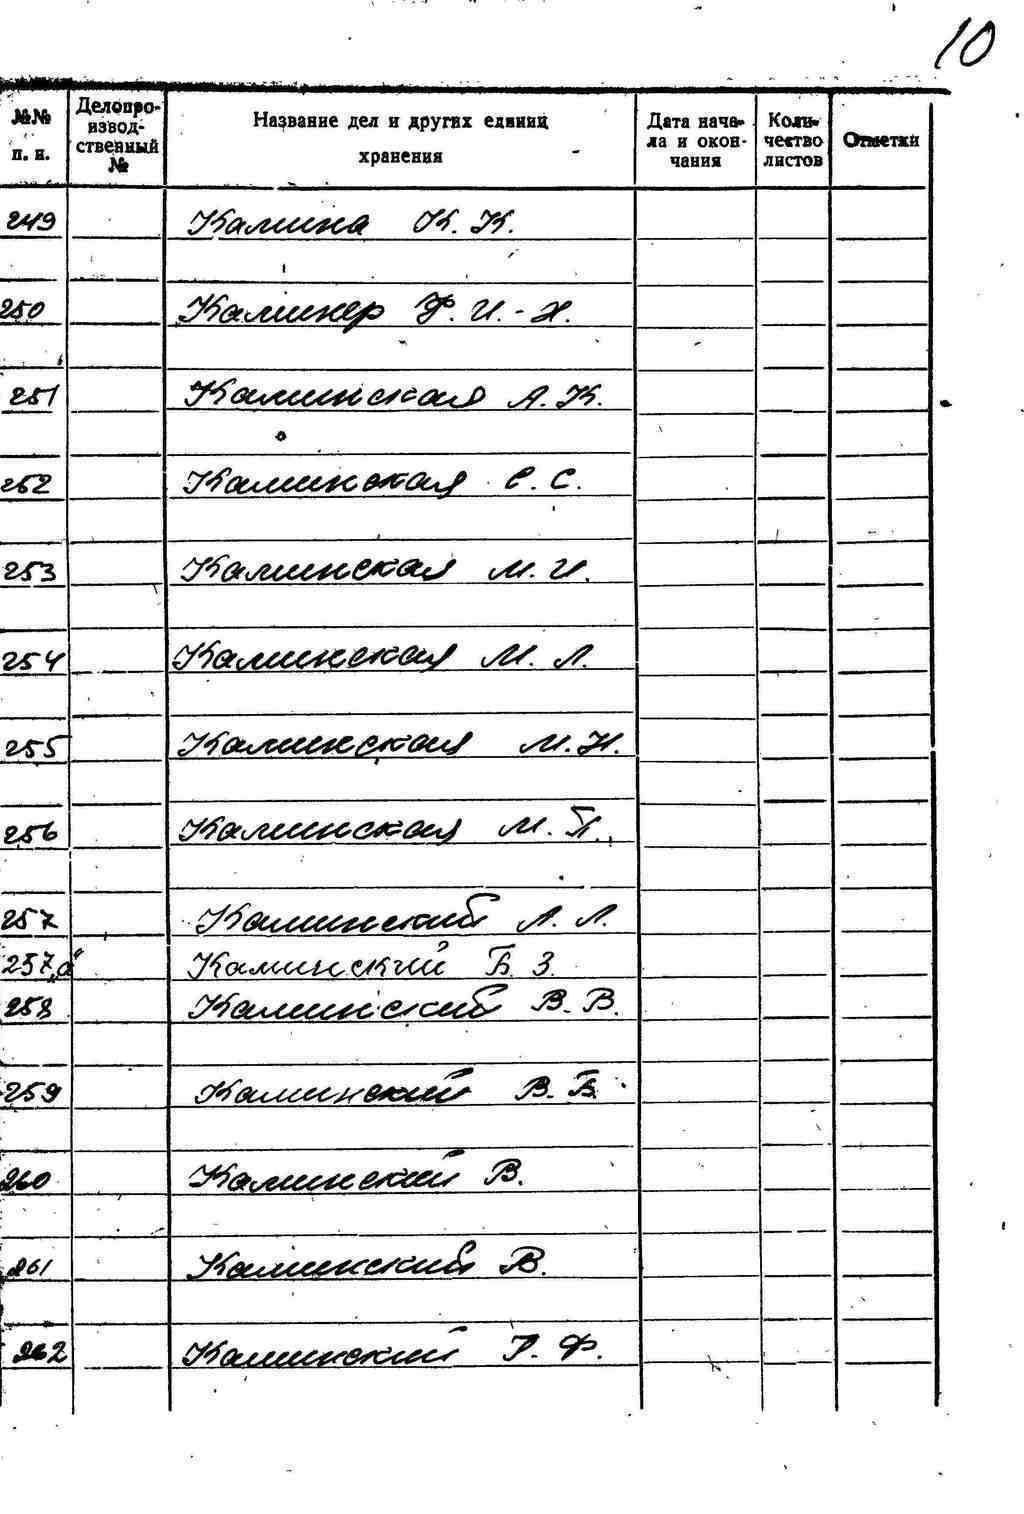 10
№№ п. п. Делопроизводственный № Название дел и других единиц хранения Дата начала и окончания Количество листов Отметки
249 Калина К. К.
250 Калинер Ф. И.-Х.
251 Калинская А. К.
252 Калинская Е. С.
253 Калинская М. И.
254 Калинская М. Л.
255 Калинская М. Н.
256 Калинская М. П.
257 Калинский А. Л.
257 „а“ Калинский Б. З.
258 Калинский В. В.
259 Калинский В. Б.
260 Калинский В.
261 Калинский В.
262 Калинский Г. Ф.